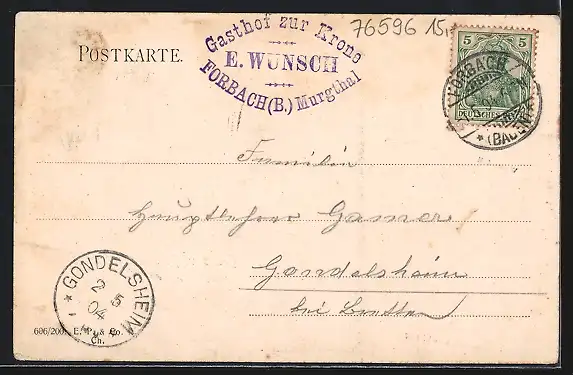 76596 15.
POSTKARTE.
Gasthof zur Krone
E. WUNSCH
FORBACH (B.) Murgthal
5 5
DEUTSCHES
FORBACH
(BADEN)
Familie
Hauptlehrer Gamer
Gondelsheim
bei Bretten
GONDELSHEIM
2 5
04
606/200. E. P. & Co.
Ch.